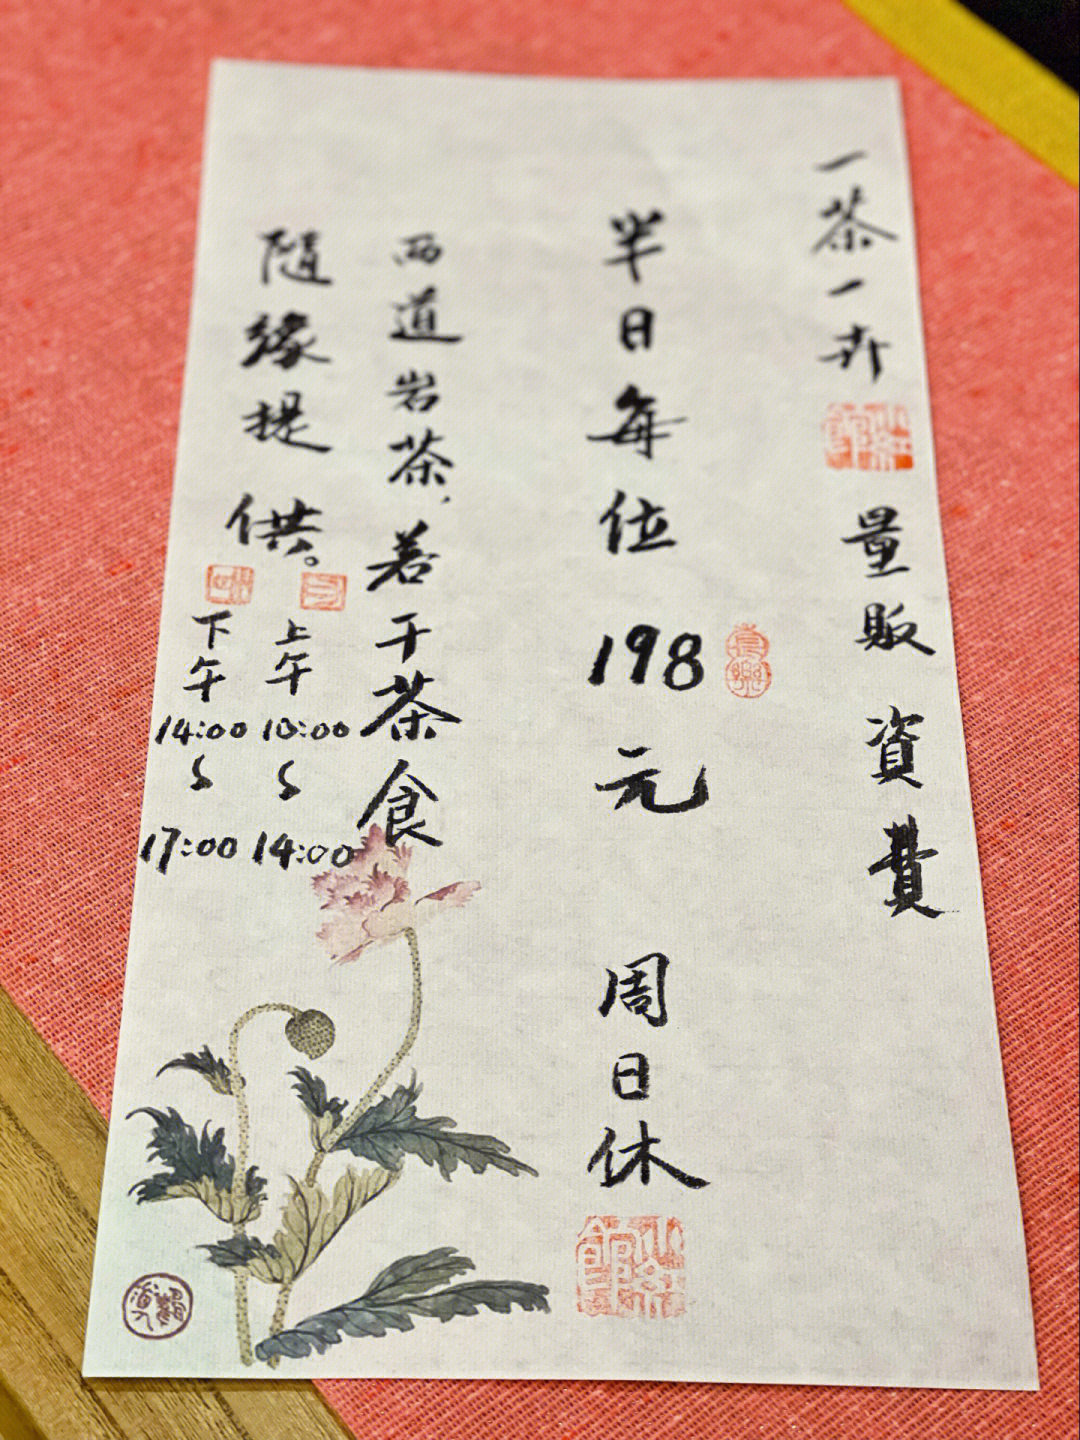 一茶一卉
量販 資費
半日每位 198元 周日休
两道岩茶，若干茶食
隨緣提供。
上午 10:00～14:00
下午 14:00～17:00